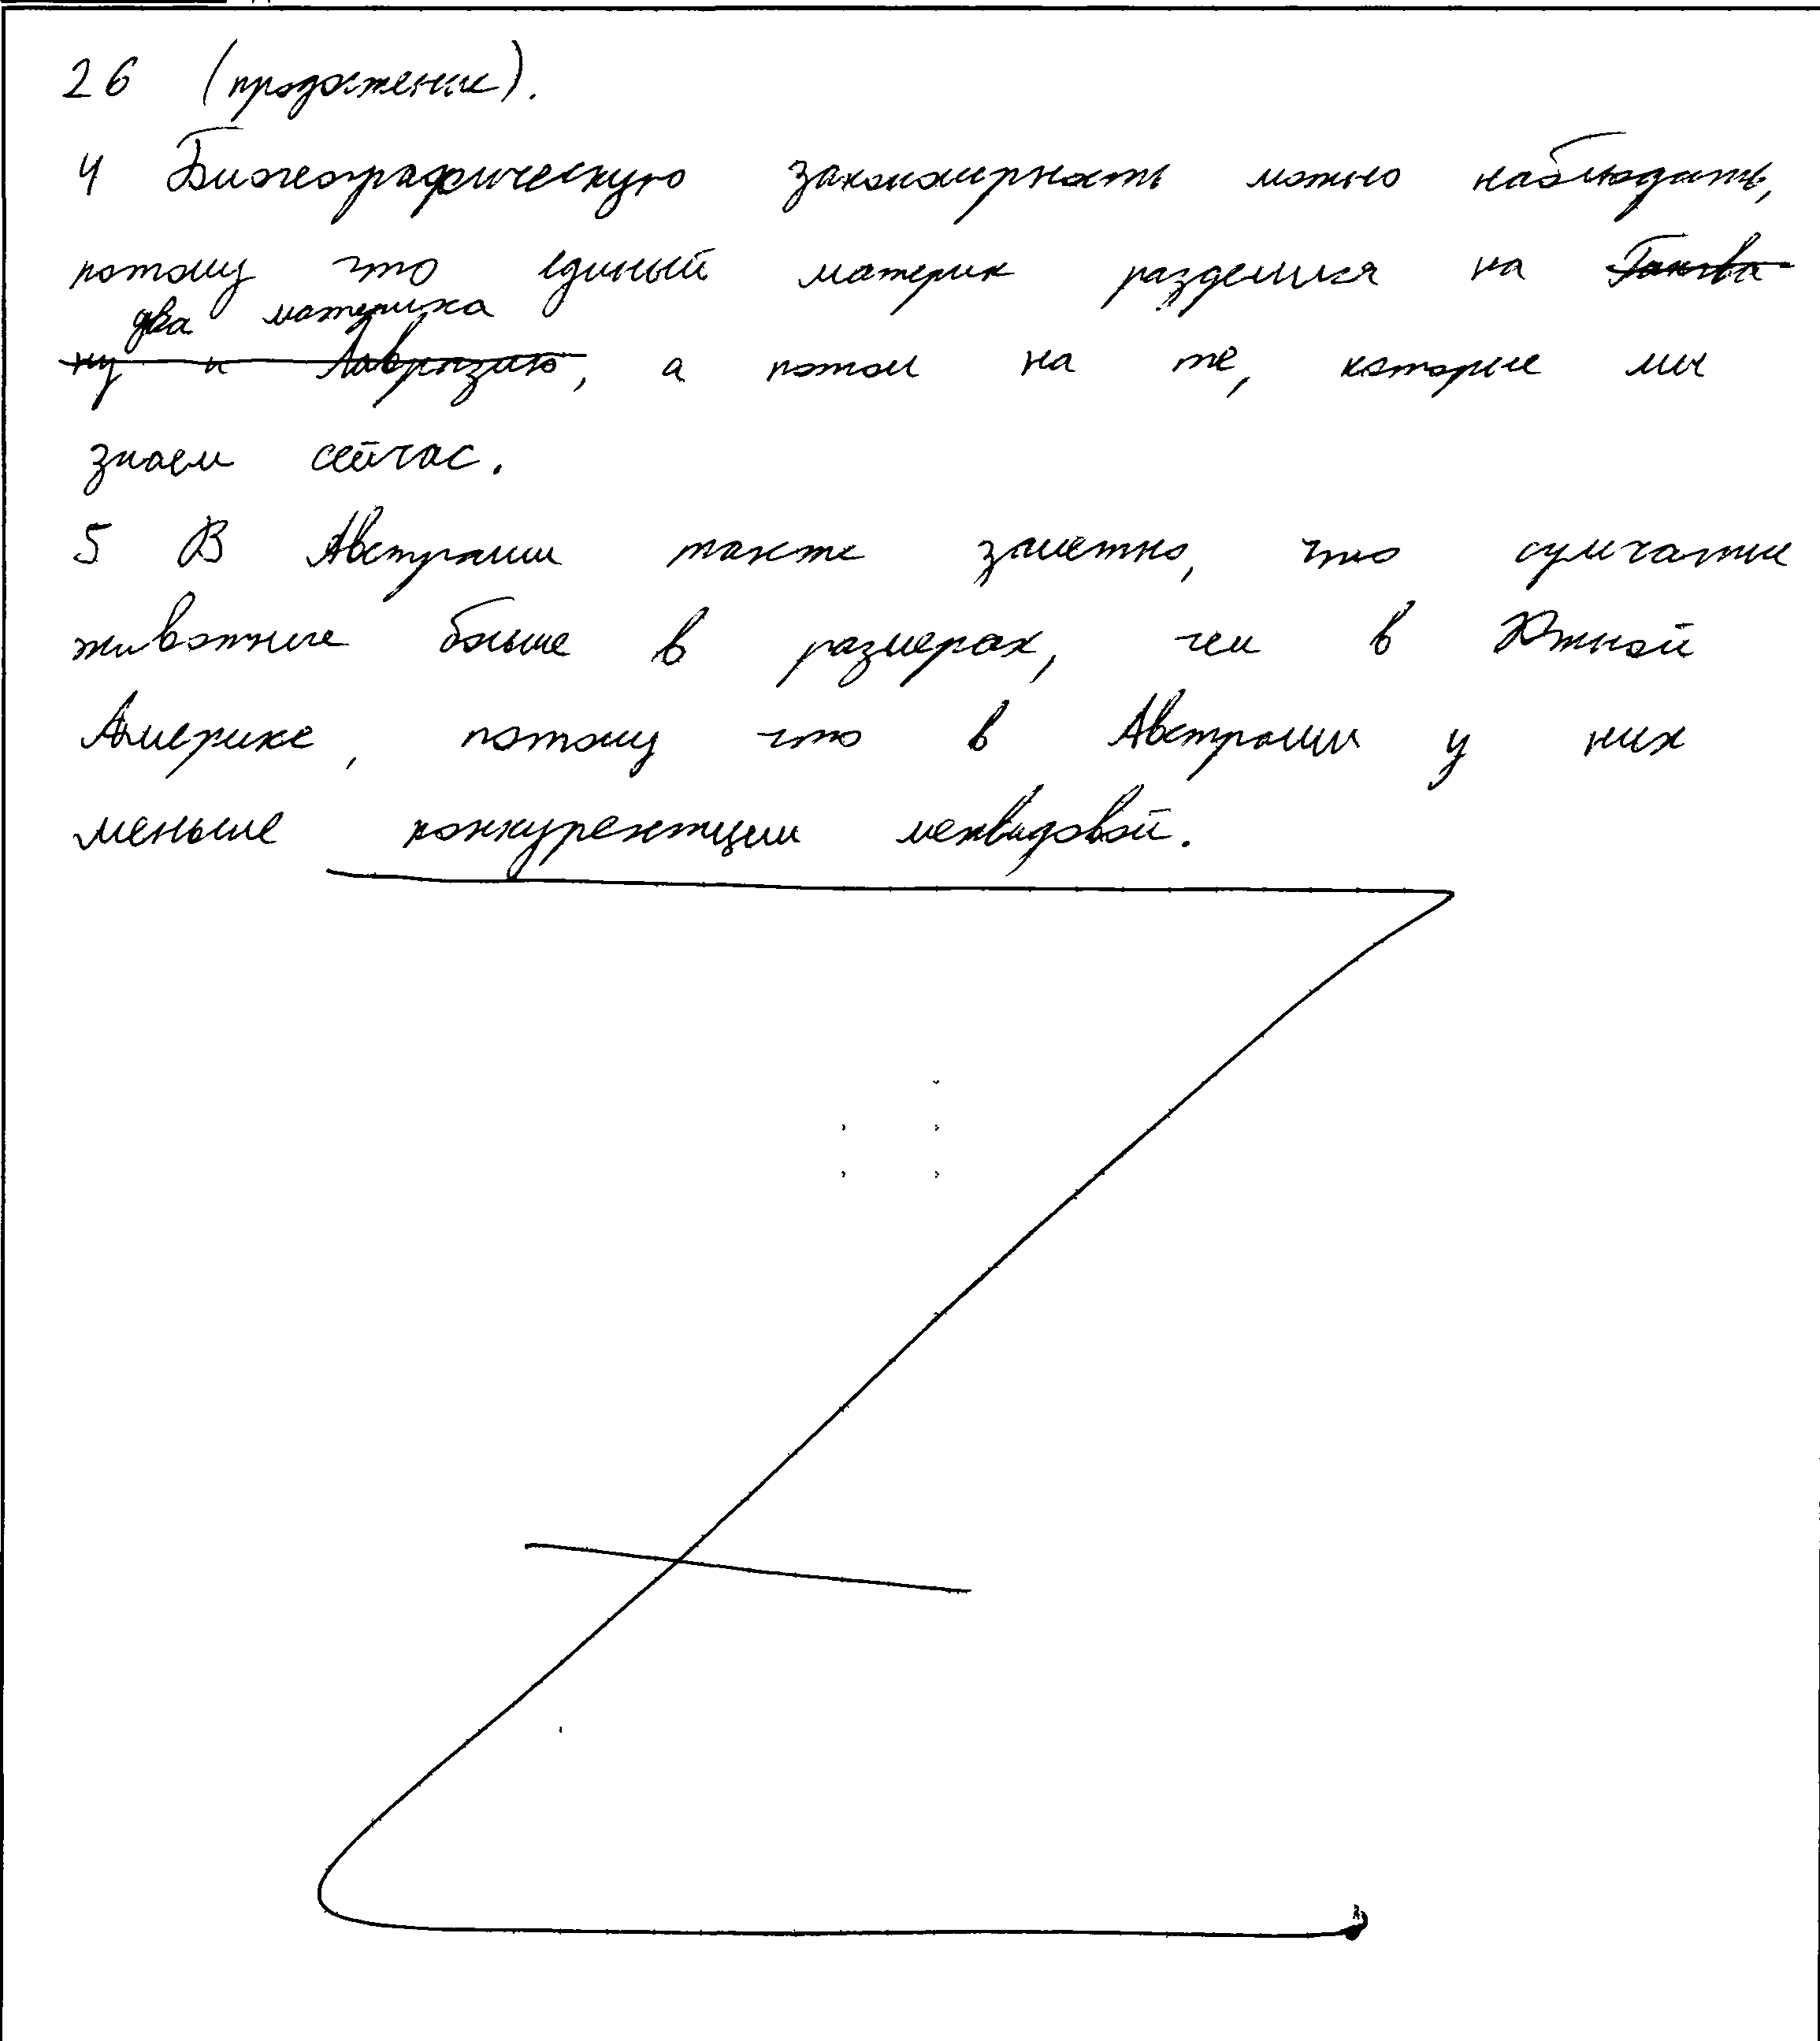 26 (продолжение).
4 Биогеографическую закономерность можно наблюдать,
потому что единый материк разделился на Гонгва-
два материка
ну и Лавразию, а потом на те, которые мы
знаем сейчас.
5 В Австралии также заметно, что сумчатые
животные больше в размерах, чем в Южной
Америке, потому что в Австралии у них
меньше конкурентции межвидовой.